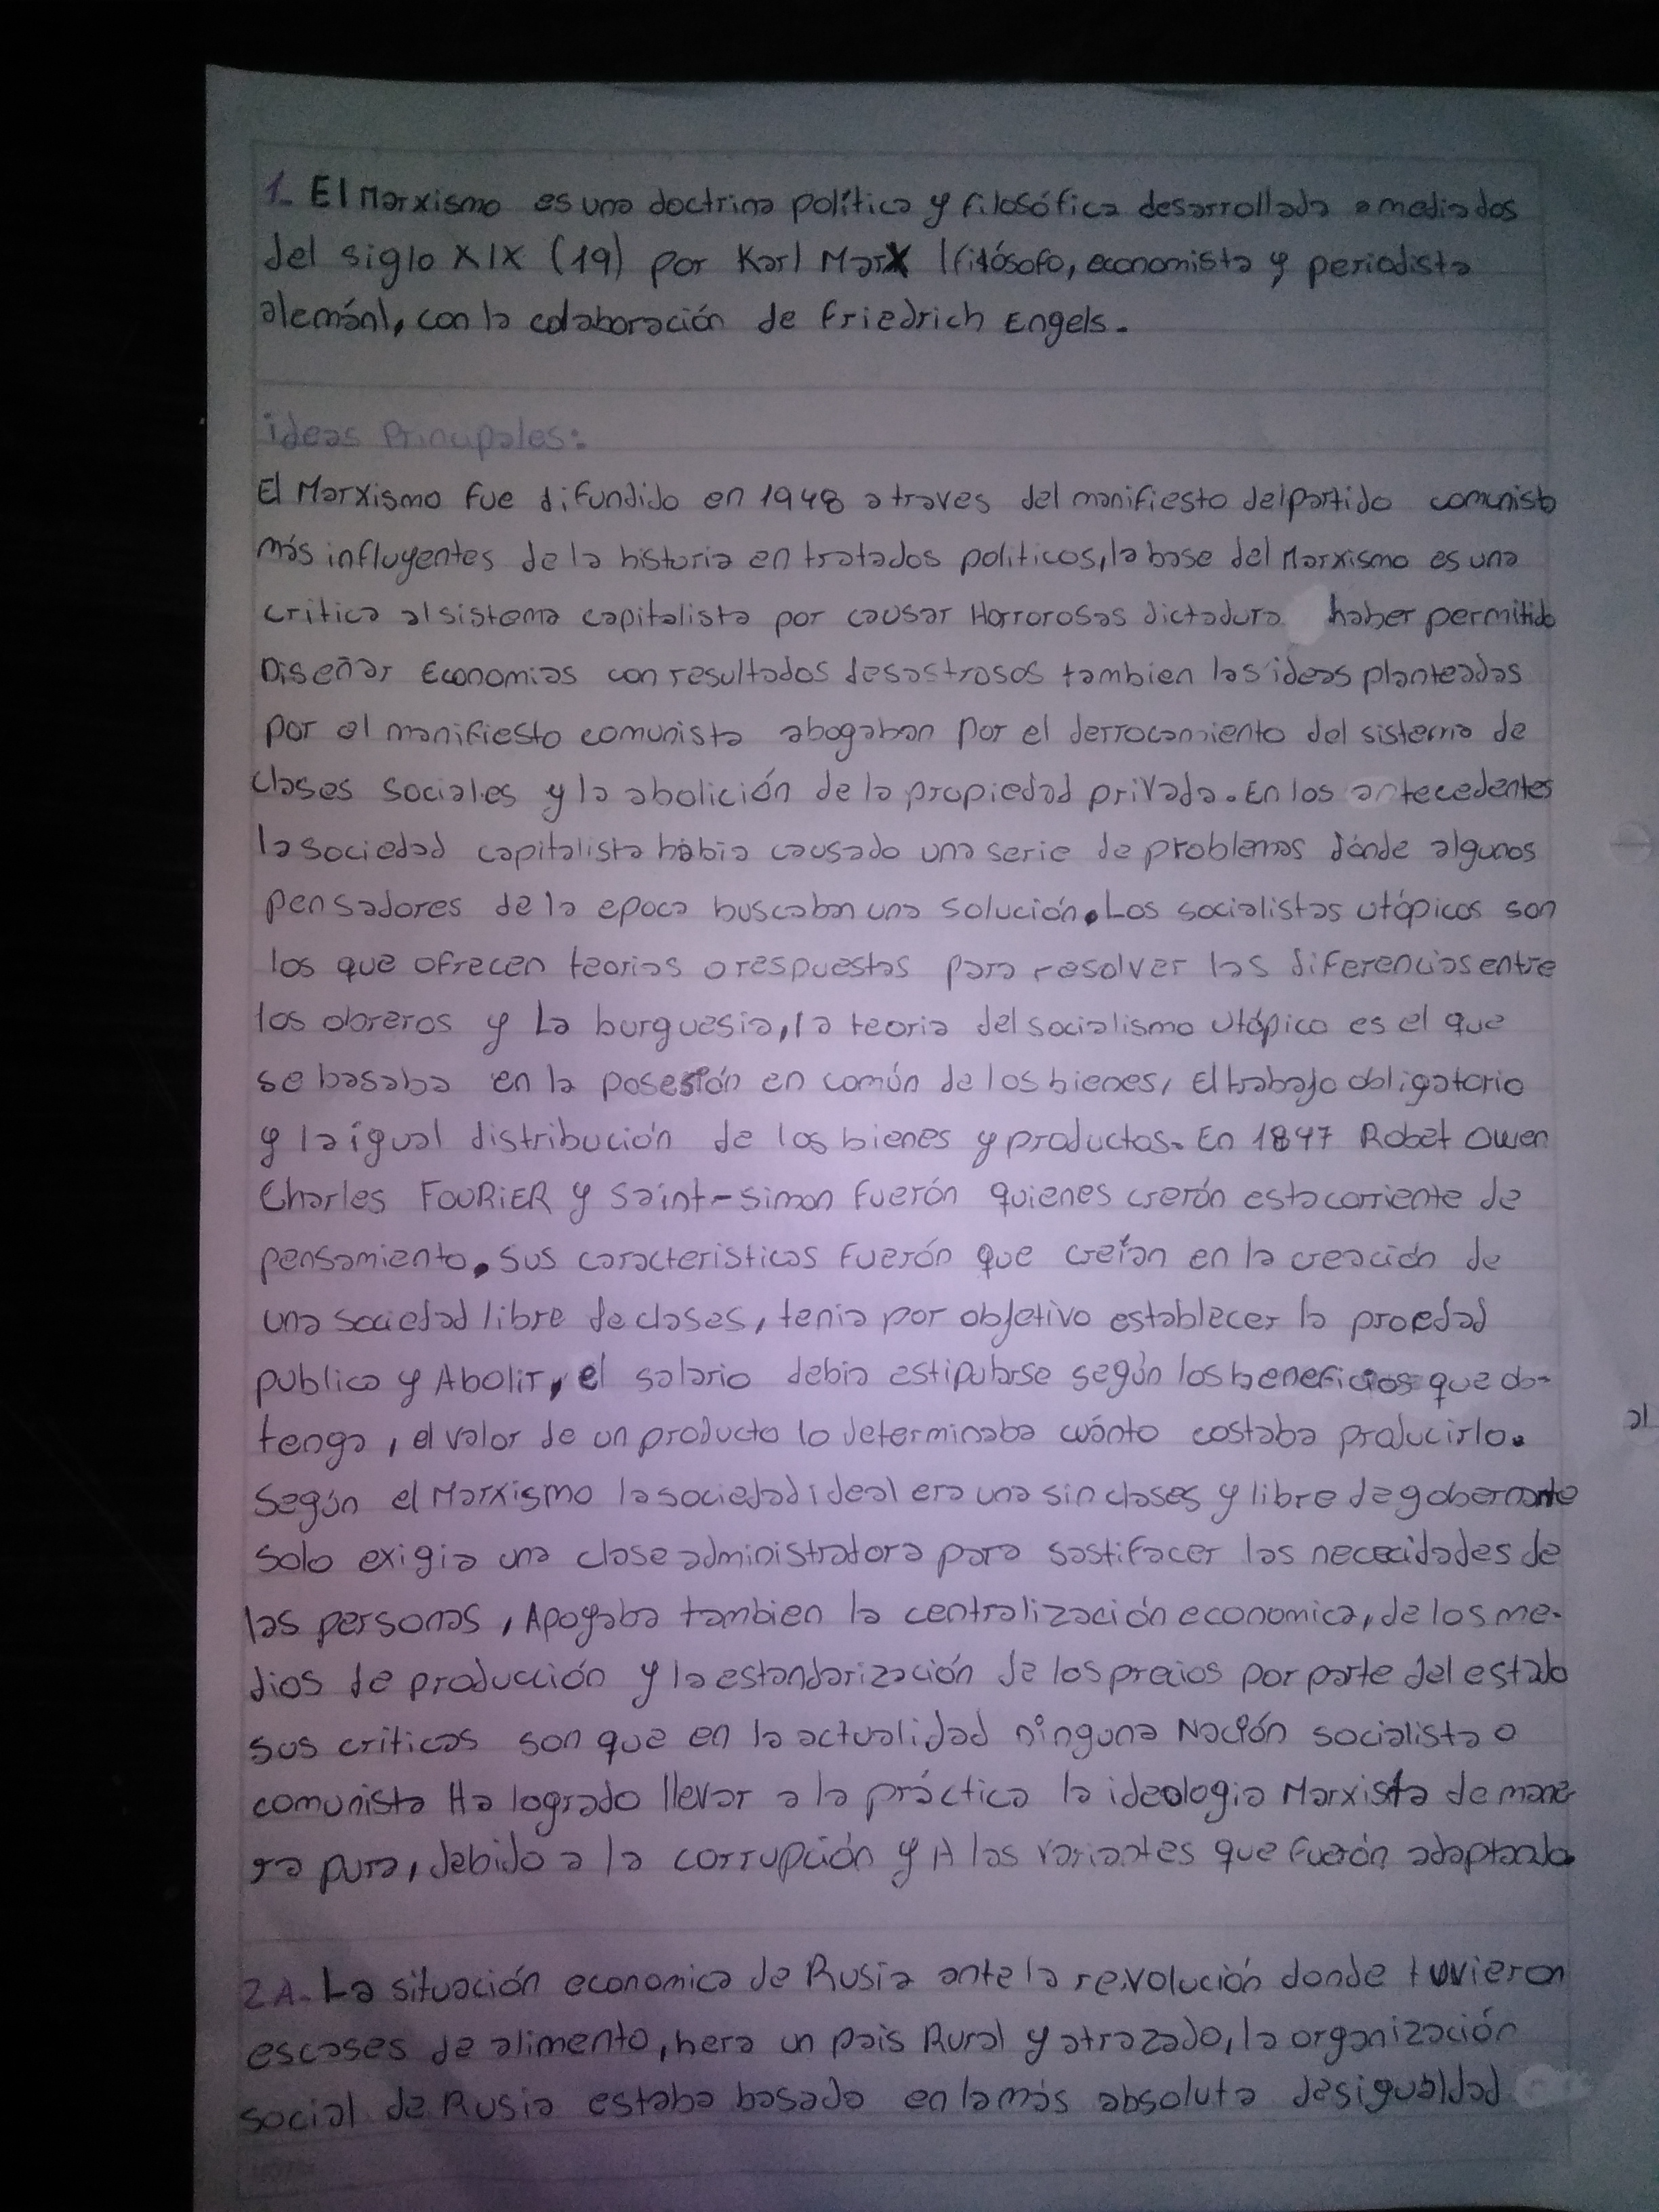 1. El Marxismo es una doctrina política y filosófica desarrollada a mediados
del siglo XIX (19) por Karl Marx (filósofo, economista y periodista
alemán), con la colaboración de Friedrich Engels.
ideas Principales:
El Marxismo fue difundido en 1948 a traves del manifiesto del partido comunista
más influyentes de la historia en tratados politicos, la base del Marxismo es una
critica al sistema capitalista por causar Horrorosas dictadura haber permitido
Diseñar Economias con resultados desastrosos tambien las ideas planteadas
por el manifiesto comunista abogaban por el derrocamiento del sistema de
clases sociales y la abolición de la propiedad privada. En los antecedentes
la sociedad capitalista habia causado una serie de problemas dónde algunos
pensadores de la epoca buscaban una solución. Los socialistas utópicos son
los que ofrecen teorias o respuestas para resolver las diferencias entre
los obreros y La burguesia, la teoria del socialismo utópico es el que
se basaba en la posesión en común de los bienes, El trabajo obligatorio
y la igual distribución de los bienes y productos. En 1847 Robet Owen
Charles FOURIER y Saint-Simon fuerón quienes crerón esta corriente de
pensamiento. Sus caracteristicas fuerón que creían en la creación de
una sociedad libre de clases, tenia por objetivo establecer la proedad
publica y Abolir, el salario debia estipularse según los beneficios que ob-
tenga, el valor de un producto lo determinaba cuánto costaba producirlo.
al
Según el Marxismo la sociedad ideal era una sin clases y libre de gobernante
solo exigia una clase administradora para sastifacer las nececidades de
las personas, Apoyaba tambien la centralización economica, de los me-
dios de producción y la estandarización de los precios por parte del estado
sus criticas son que en la actualidad ninguna Nación socialista o
comunista Ha logrado llevar a la práctica la ideologia Marxista de mane-
ra pura, debido a la corrupción y A las variantes que fuerón adaptando.
2A. La situación economica de Rusia ante la revolución donde tuvieron
escases de alimento, hera un pais Rural y atrazado, la organización
social de Rusia estaba basada en la más absoluta desigualdad